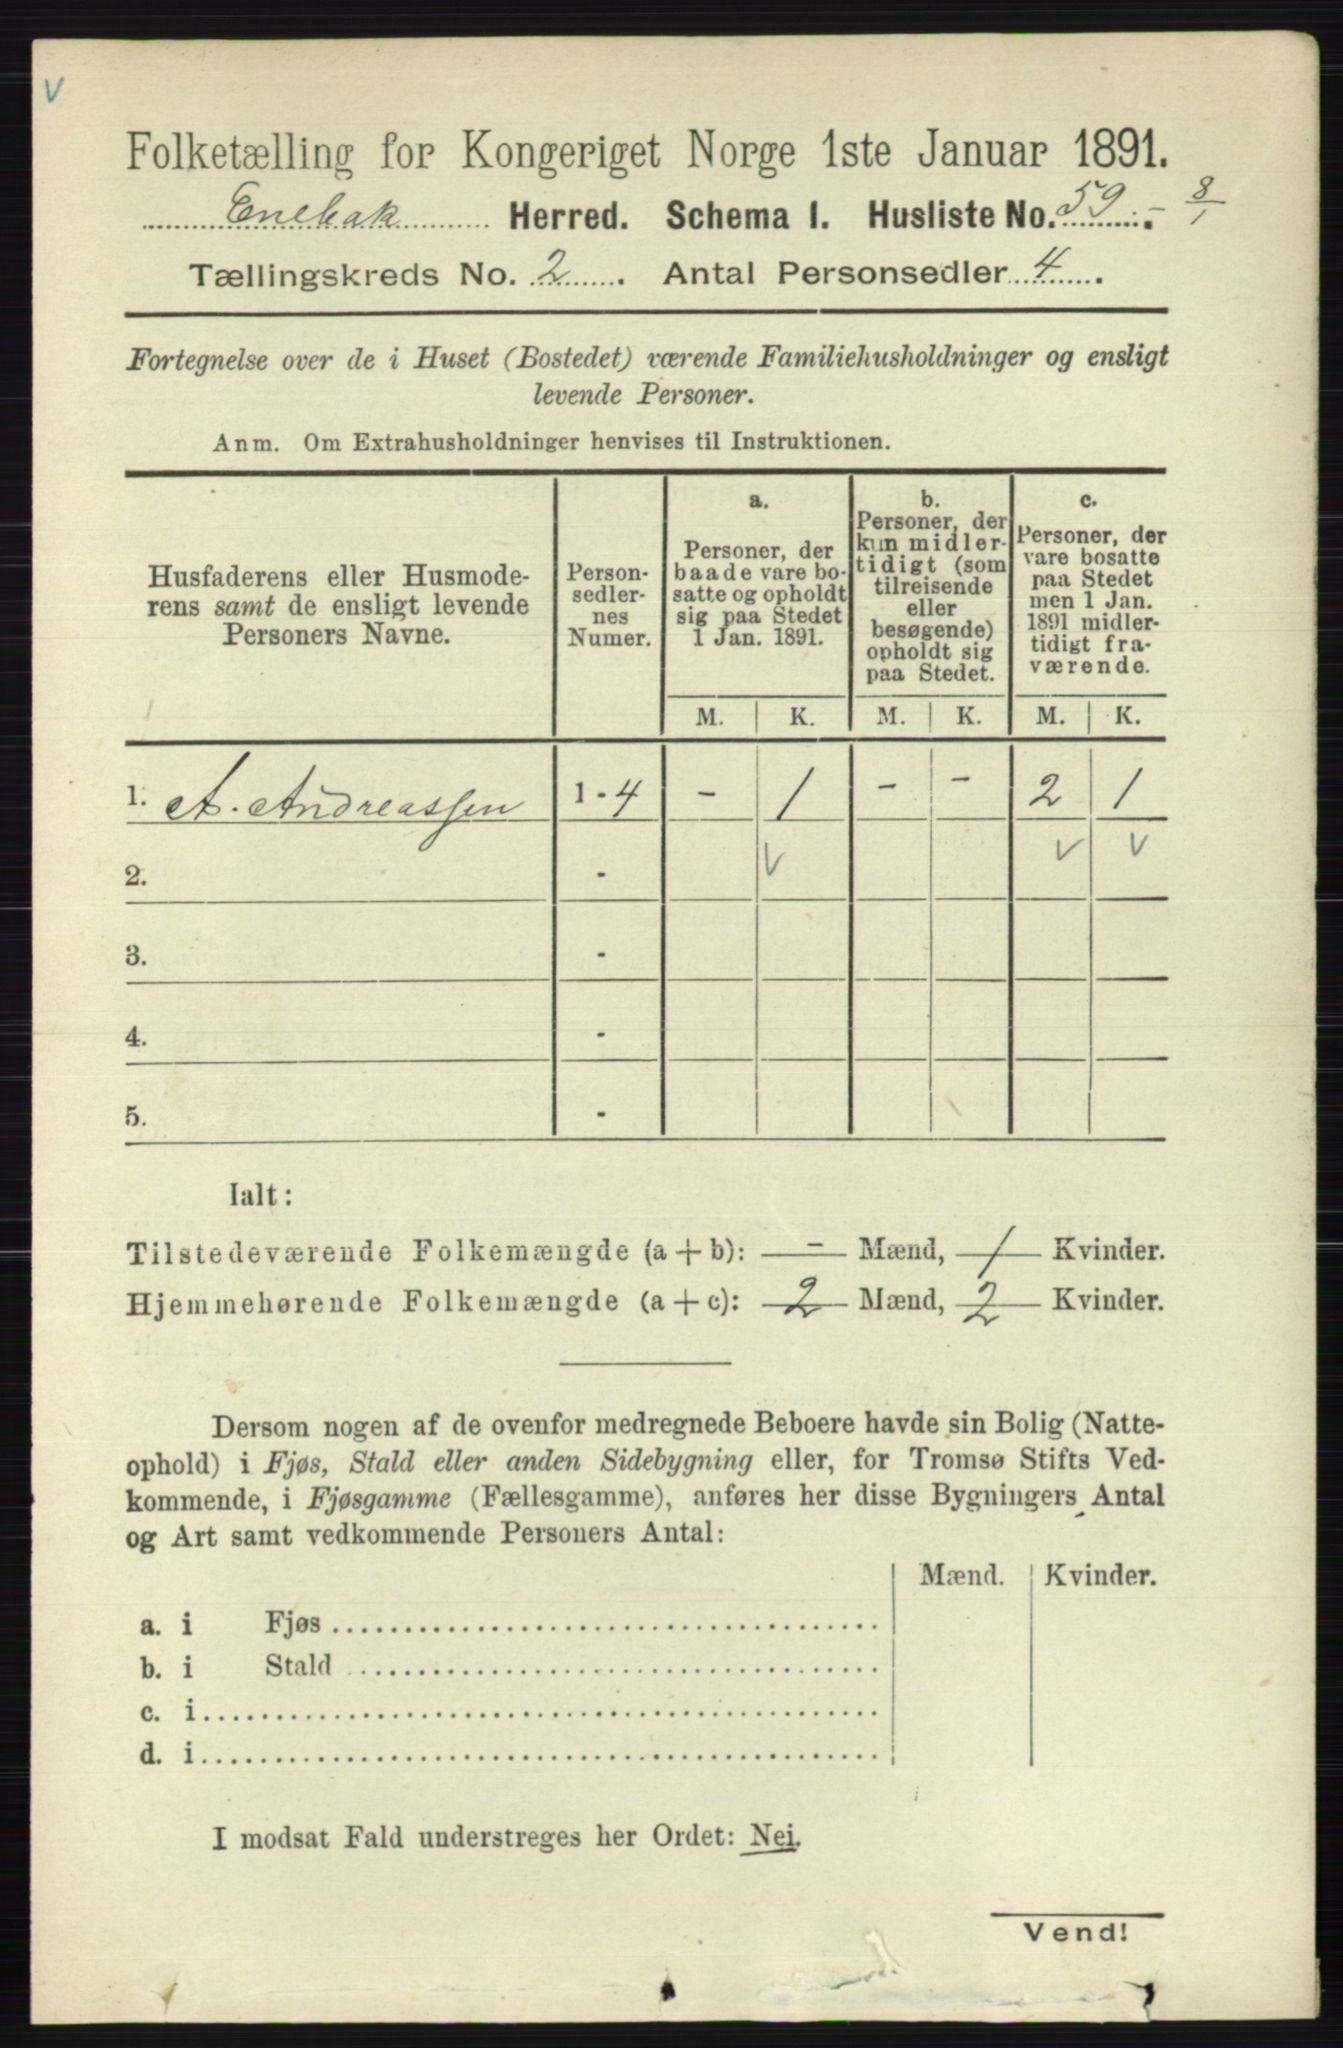 V
Folketælling for Kongeriget Norge 1ste Januar 1891.
Enebak Herred. Schema I. Husliste No. 59 - 8/1
Tællingskreds No. 2. Antal Personsedler 4.
Fortegnelse over de i Huset (Bostedet) værende Familiehusholdninger og ensligt
levende Personer.
Anm. Om Extrahusholdninger henvises til Instruktionen.
Husfaderens eller Husmode-
rens samt de ensligt levende
Personers Navne.
Person-
sedler-
nes
Numer.
a.
Personer, der
baade vare bo-
satte og opholdt
sig paa Stedet
1 Jan. 1891.
b.
Personer, der
kun midler-
tidigt (som
tilreisende
eller
besøgende)
opholdt sig
paa Stedet.
c.
Personer, der
vare bosatte
paa Stedet
men 1 Jan.
1891 midler-
tidigt fra-
værende.
M. K. M. K. M. K.
1. A. Andreassen 1 - 4 - 1 - - 2 1
V V V
2. -
3. -
4. -
5. -
Ialt:
Tilstedeværende Folkemængde (a + b): - Mænd, 1 Kvinder.
Hjemmehørende Folkemængde (a + c): 2 Mænd, 2 Kvinder.
Dersom nogen af de ovenfor medregnede Beboere havde sin Bolig (Natte-
ophold) i Fjøs, Stald eller anden Sidebygning eller, for Tromsø Stifts Ved-
kommende, i Fjøsgamme (Fællesgamme), anføres her disse Bygningers Antal
og Art samt vedkommende Personers Antal:
Mænd. Kvinder.
a. i Fjøs
b. i Stald
c. i
d. i
I modsat Fald understreges her Ordet: Nei.
Vend!